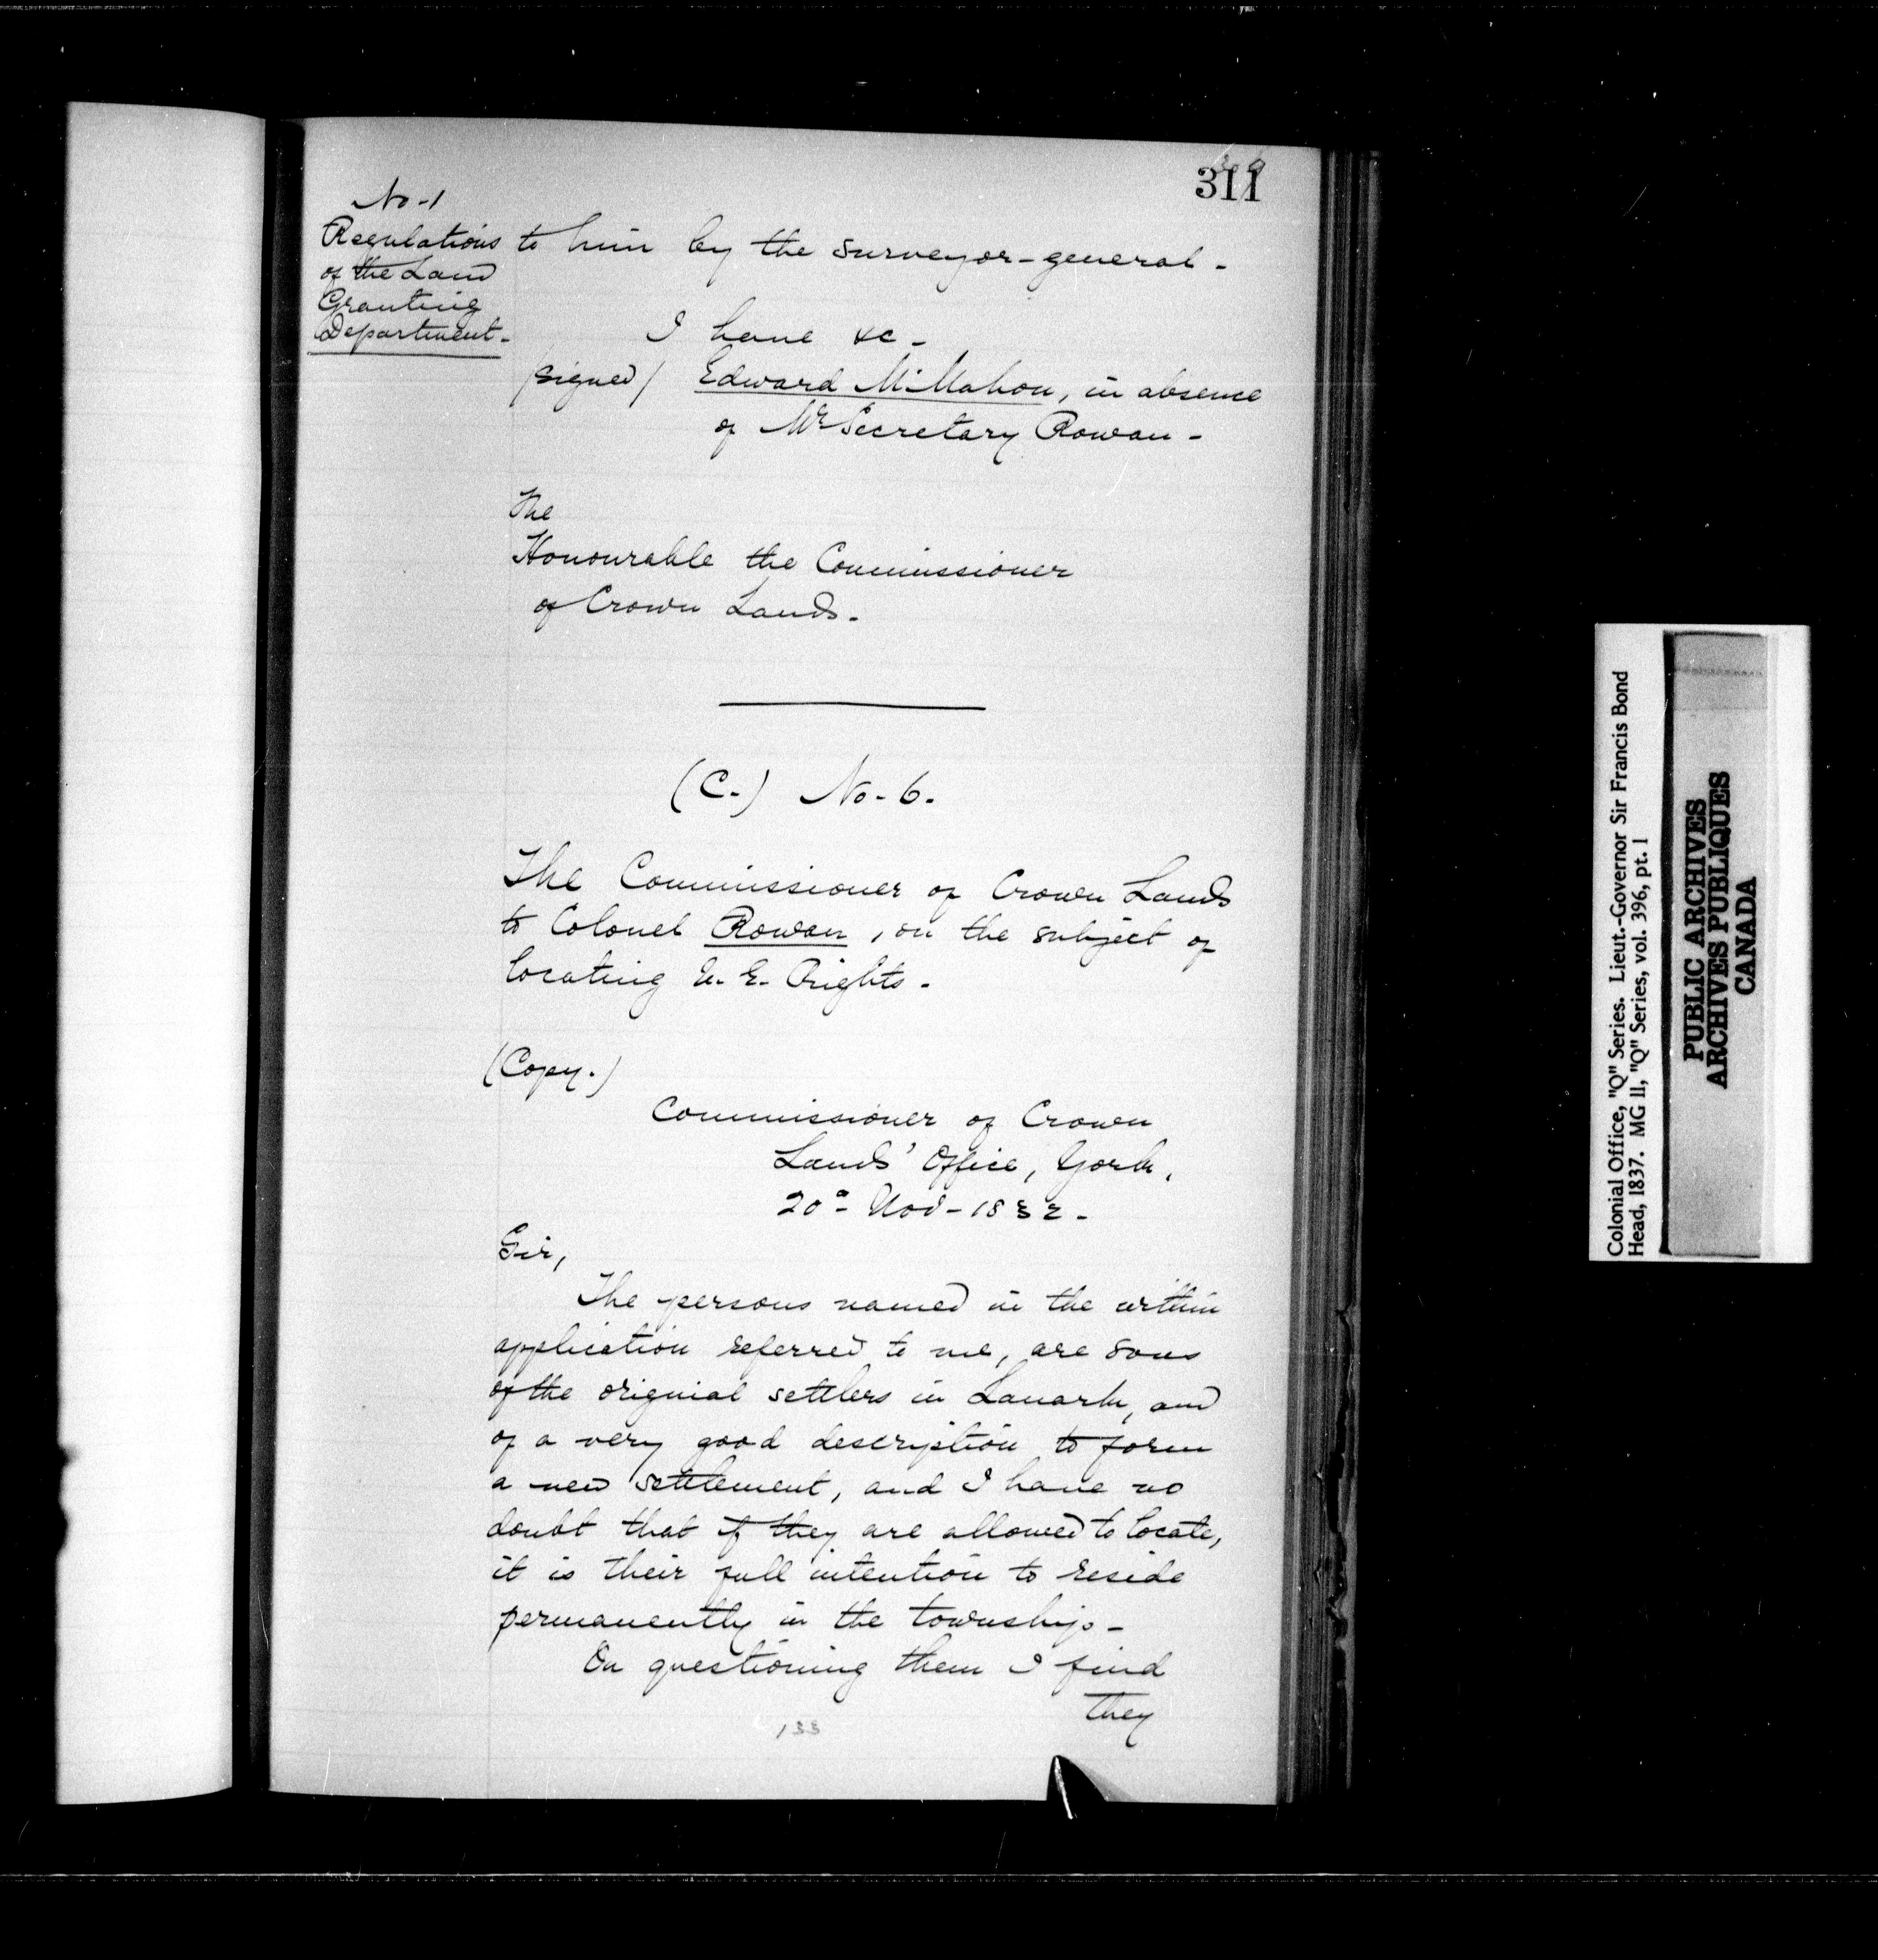 311
No-1
Regulations
of the Land
Granting
Department-
to him by the surveyor-general-
I have &c-
(signed) Edward McMahon, in absence
of Mr Secretary Rowan-
The
Honourable the Commissioner
of Crown Lands.
(C.) No-6.
The Commissioner of Crown Lands
to Colonel Rowan, on the subject of
locating U. E. Rights.
(Copy.)
Commissioner of Crown
Lands' Office, York,
20th Nov-1832-
Sir,
The persons named in the within
application referred to me, are sons
of the original settlers in Lanark, and
of a very good description to form
a new settlement, and I have no
doubt that if they are allowed to locate,
it is their full intention to reside
permanently in the township-
On questioning them I find
they
133
Colonial Office, "Q" Series. Lieut.-Governor Sir Francis Bond
Head, 1837. MG 11, "Q" Series, vol. 396, pt. 1
PUBLIC ARCHIVES
ARCHIVES PUBLIQUES
CANADA